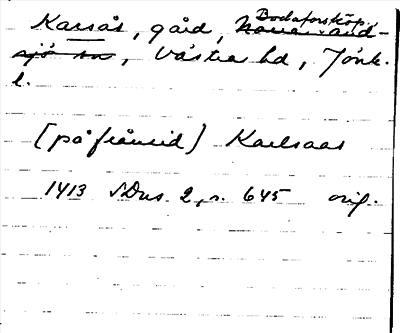 Karsås, gård, Bodafors köp.
Norra Sandsjö sn, Västra hd, Jönk.
l.
[på frånsid] Karlsaas
1413 SDns 2, s. 645 orig.